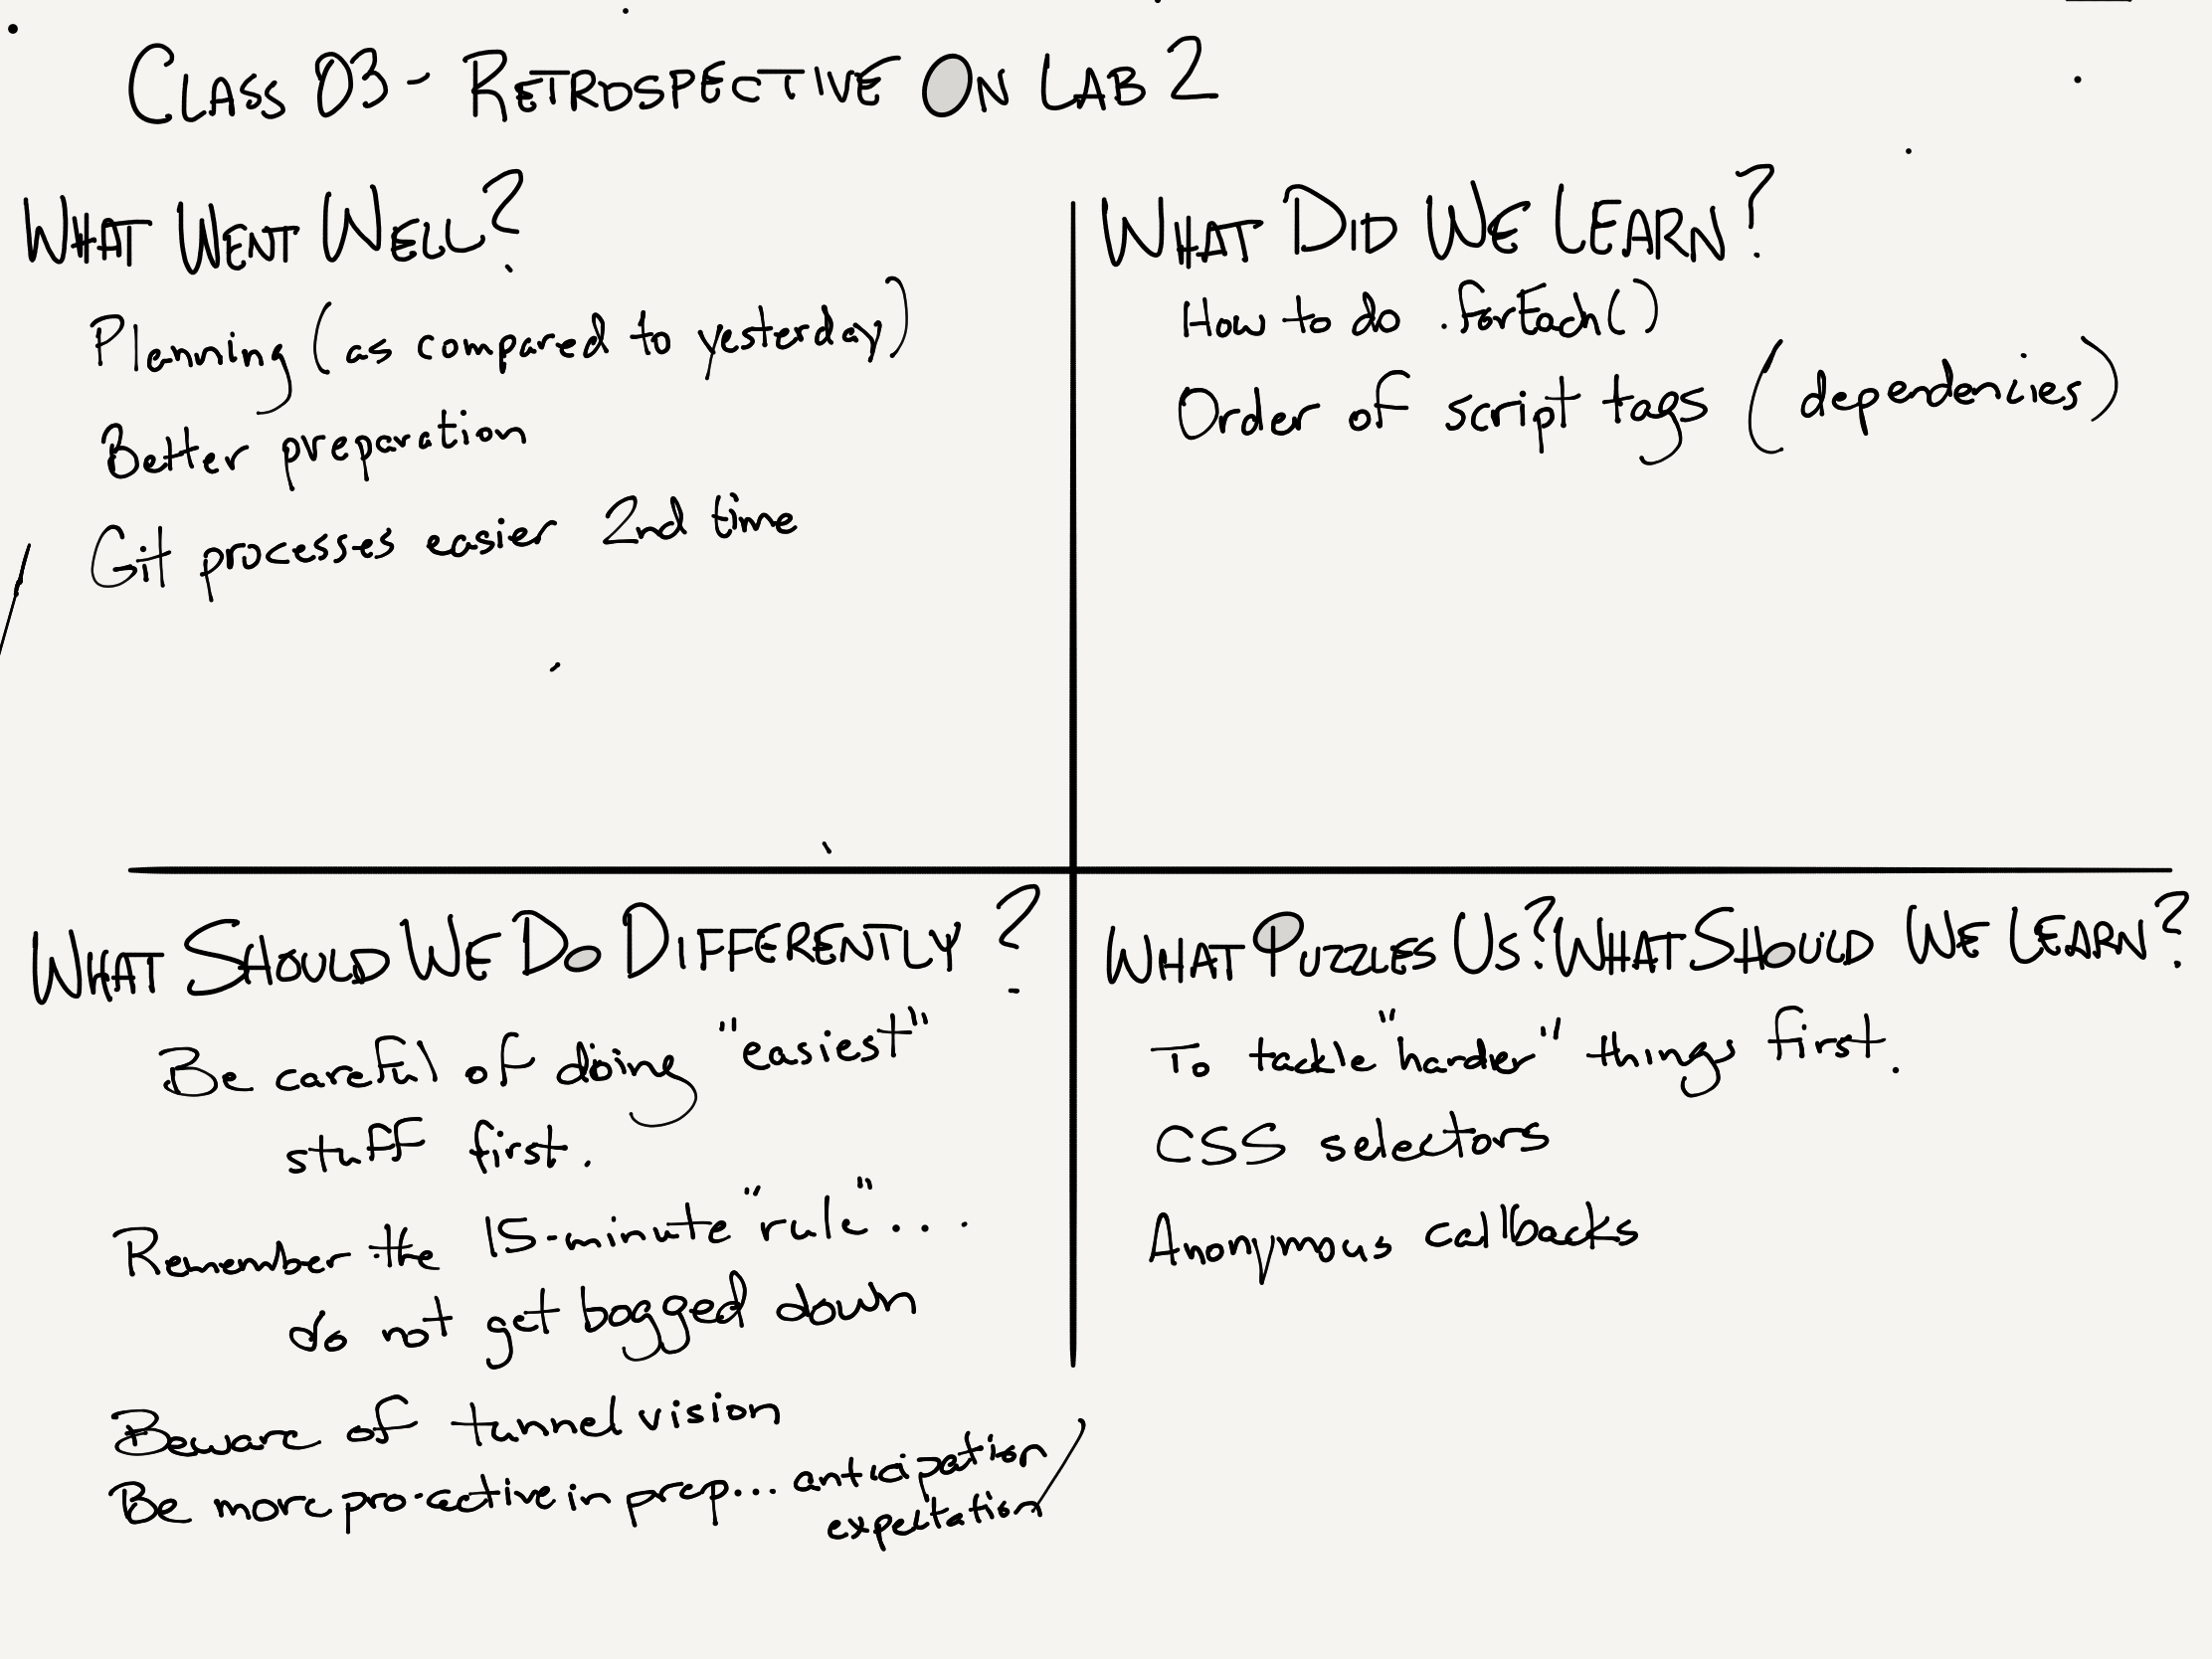 CLASS 03 - RETROSPECTIVE ON LAB 2
WHAT WENT WELL?
Planning (as compared to yesterday)
Better preparation
Git processes easier 2nd time
WHAT DID WE LEARN?
How to do .forEach()
Order of script tags (dependencies)
WHAT SHOULD WE DO DIFFERENTLY?
Be careful of doing "easiest"
stuff first.
Remember the 15-minute "rule"...
do not get bogged down
Beware of tunnel vision
Be more pro-active in prep... anticipation/
expectation
WHAT PUZZLES US? WHAT SHOULD WE LEARN?
To tackle "harder" things first.
CSS selectors
Anonymous callbacks